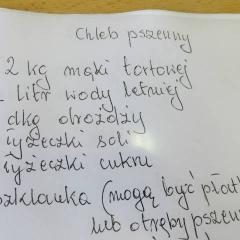 Chleb pszenny
2 kg mąki tortowej
litr wody letniej
dkg drożdży
łyżeczki soli
łyżeczki cukru
szklanka (mogą być płat
lub otręby pszen